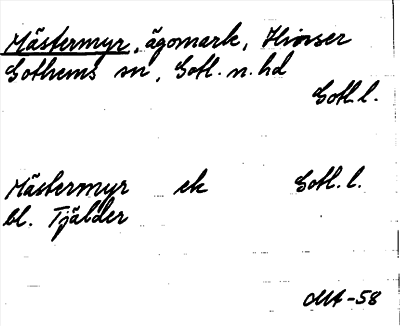 Mästermyr, ägomark, Hinser
Gothems sn, Gotl. n. hd
Gotl. l.
Mästermyr ek Gotl. l.
bl. Tjälder
-58